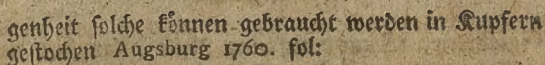 genheit ſolche können gebraucht werden in Kupfern
geſtochen Augsburg 1760. fol: